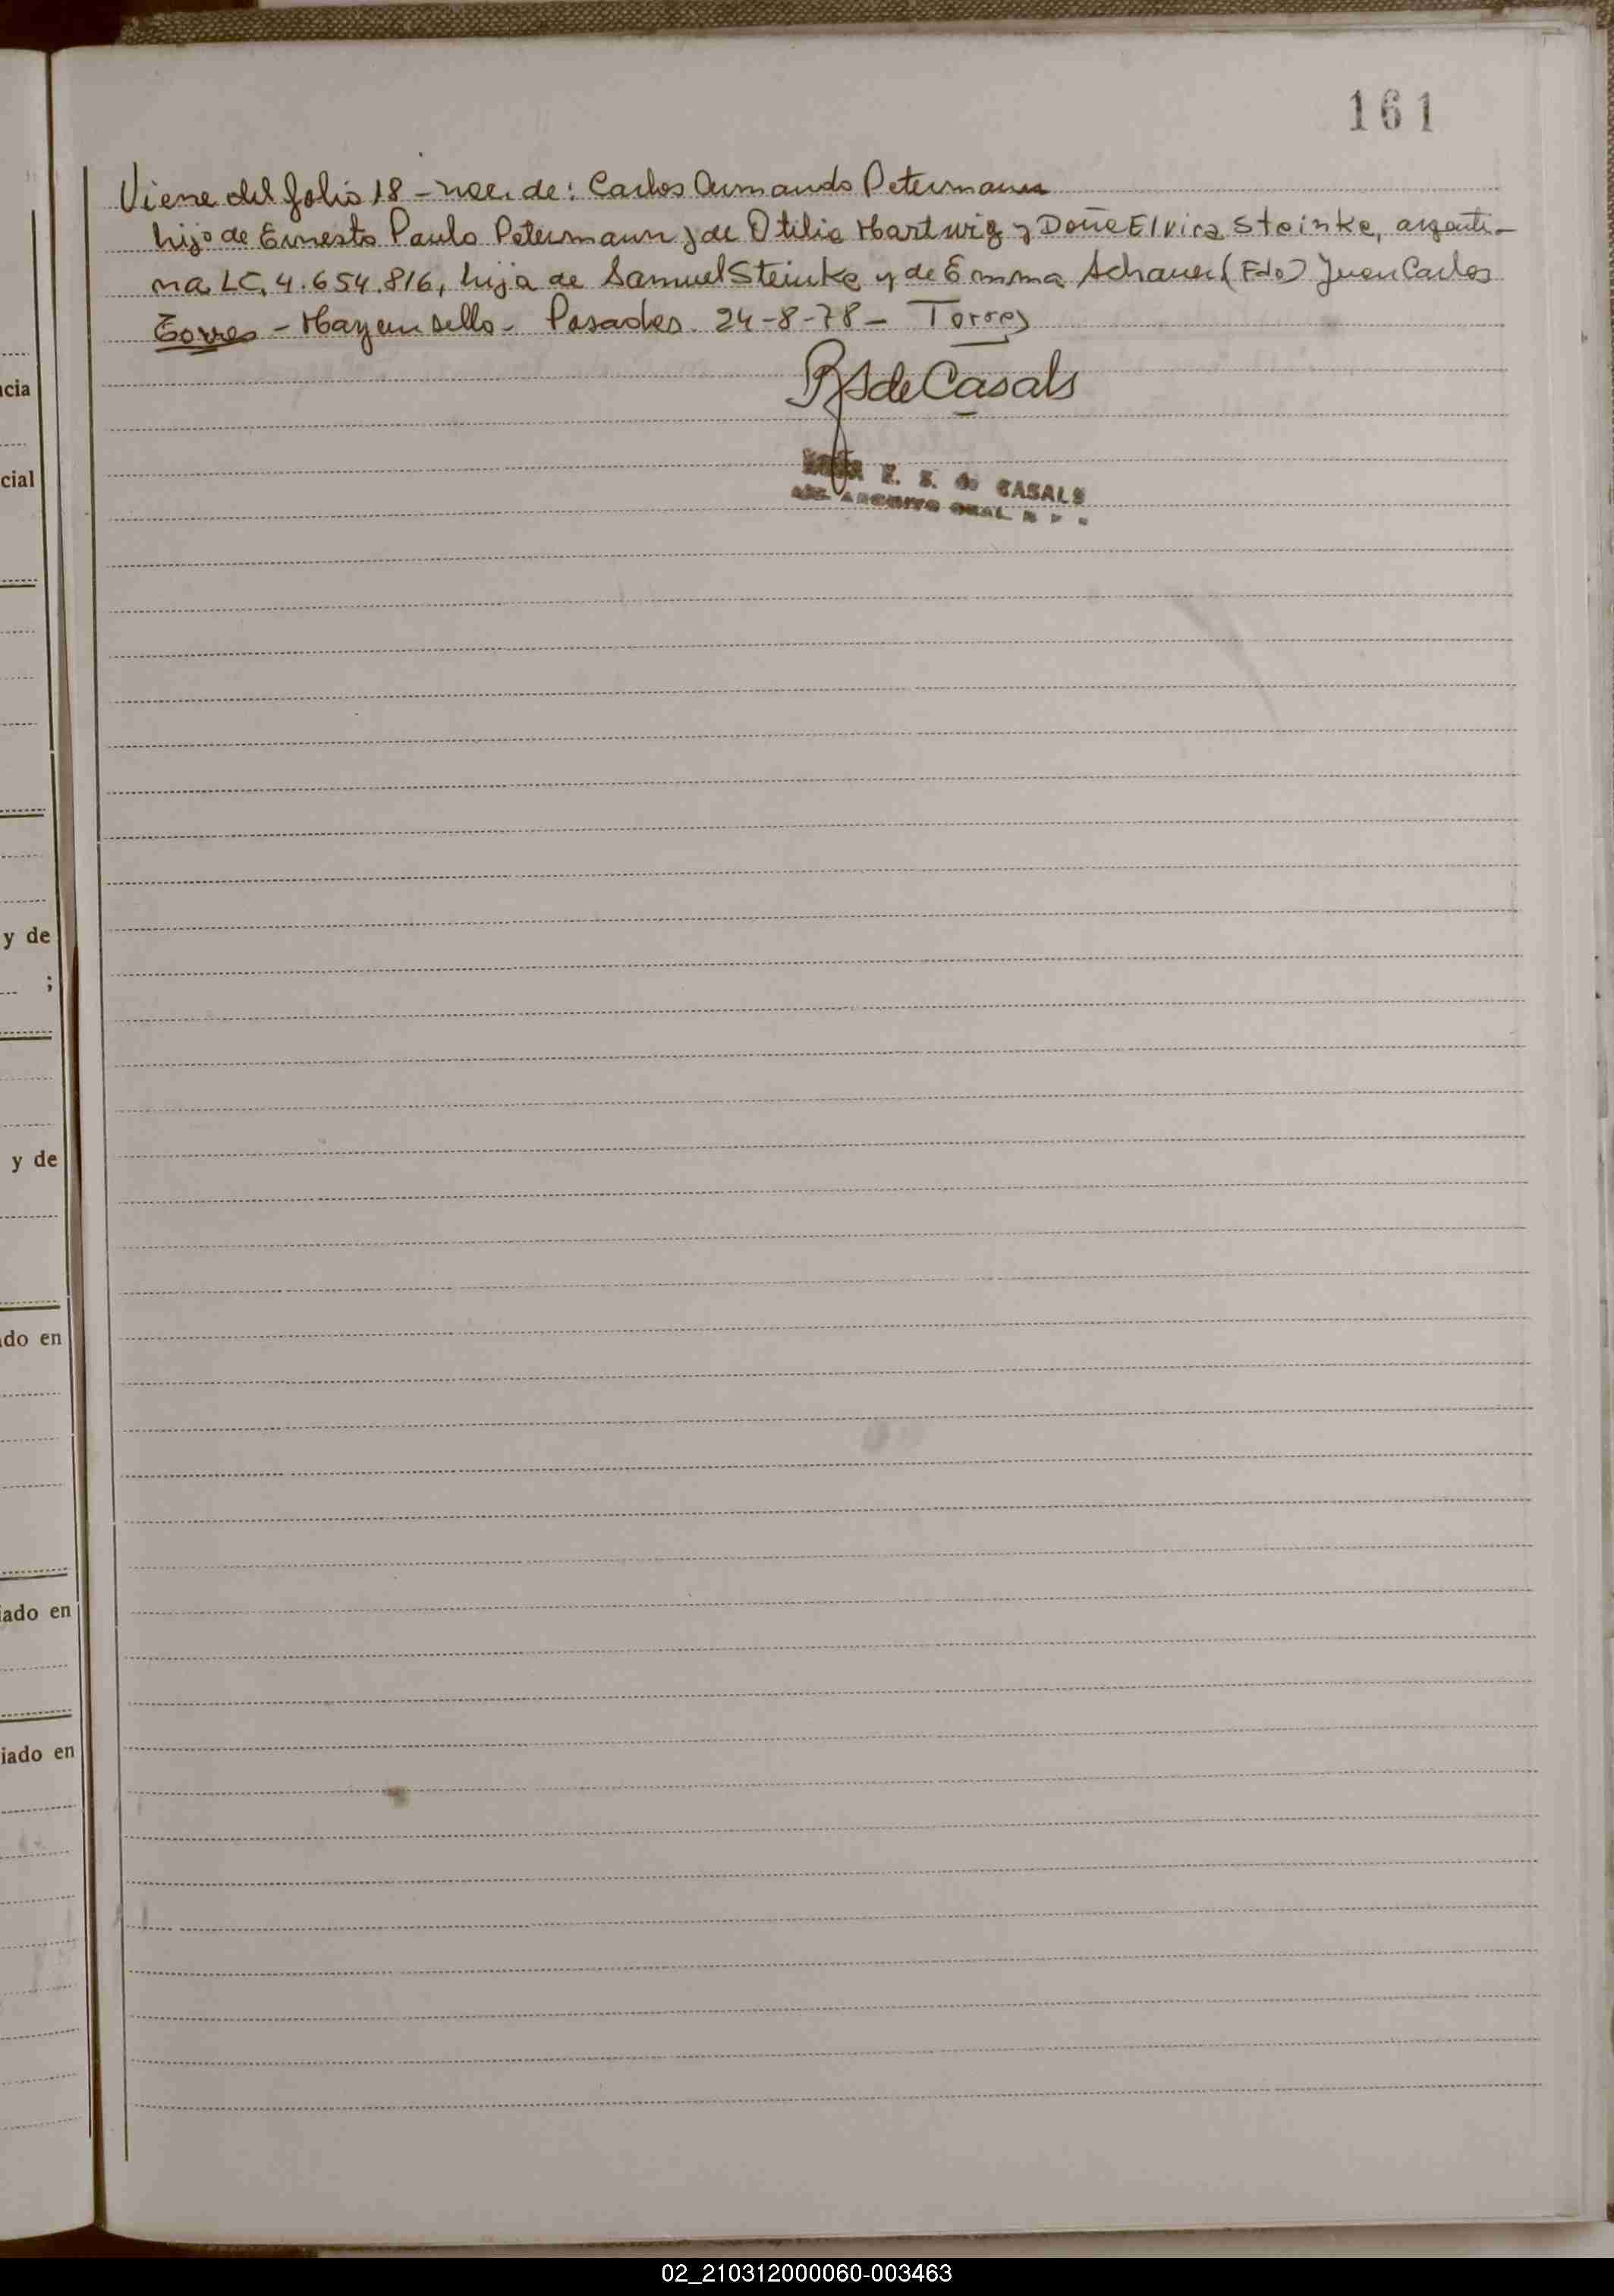 161
Viene del folio 18 - nac. de: Carlos Armando Petermann
hijo de Ernesto Paulo Petermann y de Otilia Hartwig y Doña Elvira Steinke, argenti-
na LC. 4.654.816, hija de Samuel Steinke y de Emma Schauer (Fdo) Juan Carlos
Torres - Hay un sello - Posadas 24-8-78 - Torres
RS de Casals
E. S. de CASALS
ARCHIVO GRAL.
ncia
cial
y de
;
y de
do en
iado en
iado en
02_210312000060-003463